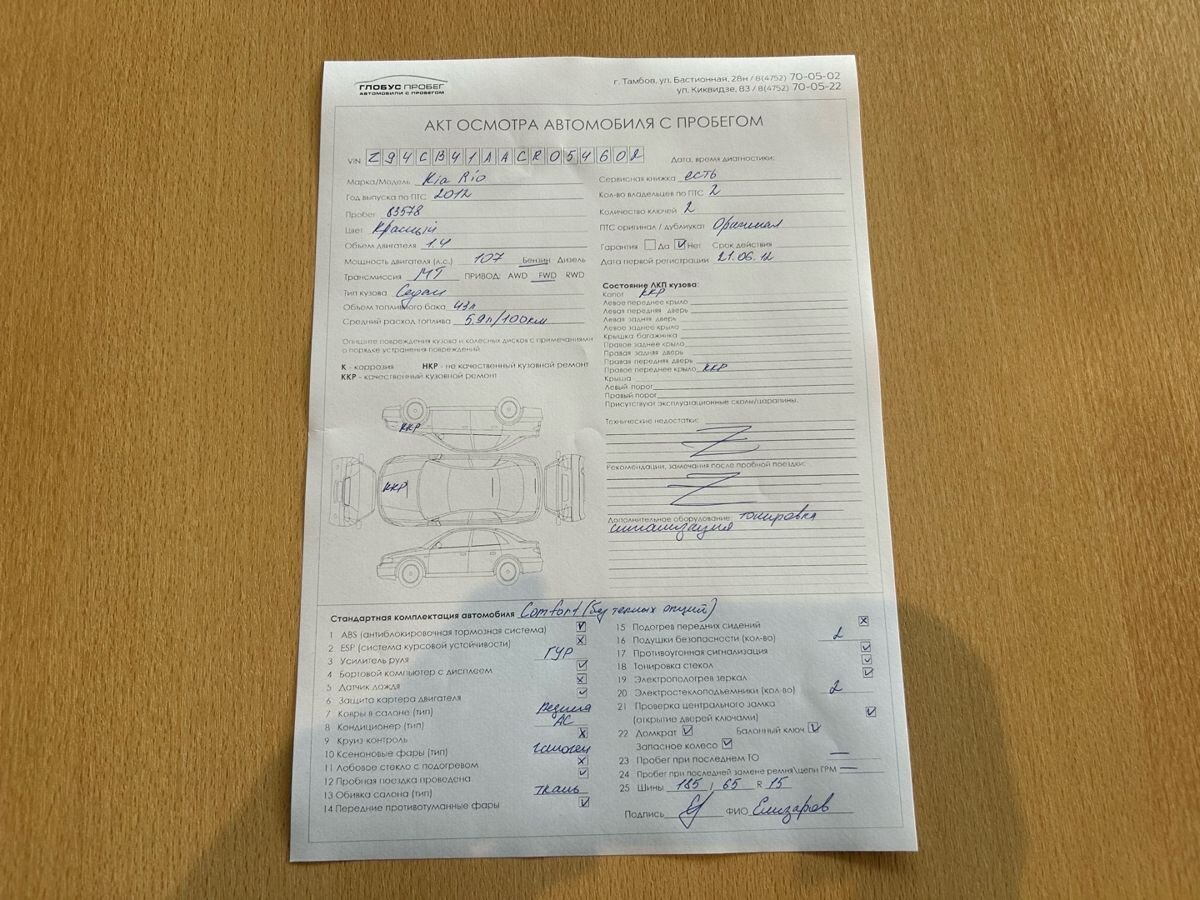 ГЛОБУС ПРОБЕГ
АВТОМОБИЛИ С ПРОБЕГОМ
г. Тамбов, ул. Бастионная, 28н / 8(4752) 70-05-02
ул. Киквидзе, 83 / 8(4752) 70-05-22
АКТ ОСМОТРА АВТОМОБИЛЯ С ПРОБЕГОМ
VIN Z94CB41AACR054602
Марка/Модель Kia Rio
Год выпуска по ПТС 2012
Пробег 83578
Цвет Красный
Объем двигателя 1.4
Мощность двигателя (л.с.) 107 Бензин Дизель
Трансмиссия МТ ПРИВОД: AWD FWD RWD
Тип кузова Седан
Объем топливного бака 43л
Средний расход топлива 5,9л/100км
Опишите повреждения кузова и колесных дисков с примечаниями
о порядке устранения повреждений
К - коррозия НКР - не качественный кузовной ремонт
ККР - качественный кузовной ремонт
ККР
ККР
Дата, время диагностики:
Сервисная книжка есть
Кол-во владельцев по ПТС 2
Количество ключей 2
ПТС оригинал / дубликат Оригинал
Гарантия Да Нет Срок действия
Дата первой регистрации 21.06.12
Состояние ЛКП кузова:
Капот ККР
Левое переднее крыло
Левая передняя дверь
Левая задняя дверь
Левое заднее крыло
Крышка багажника
Правое заднее крыло
Правая задняя дверь
Правая передняя дверь
Правое переднее крыло ККР
Крыша
Левый порог
Правый порог
Присутствуют эксплуатационные сколы/царапины.
Технические недостатки:
Рекомендации, замечания после пробной поездки:
Дополнительное оборудование тонировка
сигнализация
Стандартная комплектация автомобиля Comfort (без теплых опций)
1 ABS (антиблокировочная тормозная система)
2 ESP (система курсовой устойчивости)
3 Усилитель руля ГУР
4 Бортовой компьютер с дисплеем
5 Датчик дождя
6 Защита картера двигателя
7 Ковры в салоне (тип) Резина
8 Кондиционер (тип) АС
9 Круиз контроль
10 Ксеноновые фары (тип) галоген
11 Лобовое стекло с подогревом
12 Пробная поездка проведена
13 Обивка салона (тип) ткань
14 Передние противотуманные фары
15 Подогрев передних сидений
16 Подушки безопасности (кол-во) 2
17 Противоугонная сигнализация
18 Тонировка стекол
19 Электроподогрев зеркал
20 Электростеклоподъемники (кол-во) 2
21 Проверка центрального замка
(открытие дверей ключами)
22 Домкрат Балонный ключ
Запасное колесо
23 Пробег при последнем ТО —
24 Пробег при последней замене ремня\цепи ГРМ —
25 Шины 185 / 65 R 15
Подпись ФИО Елизаров